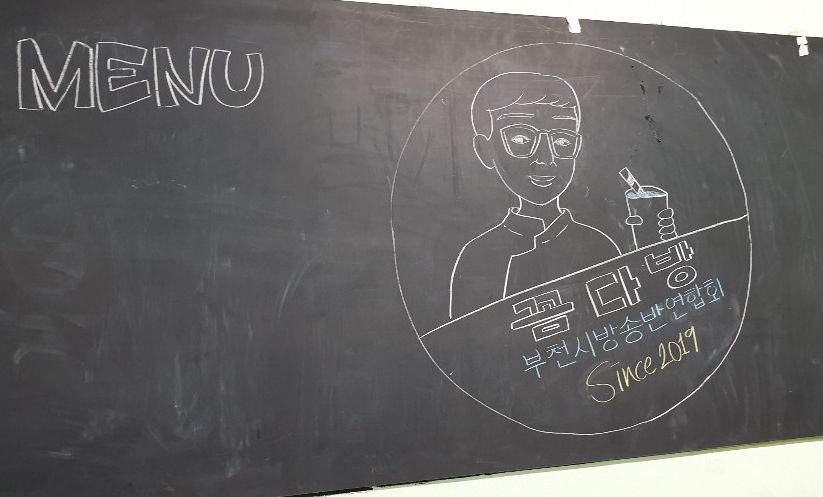 MENU
꼼다방
부천시방송반연합회
Since 2019